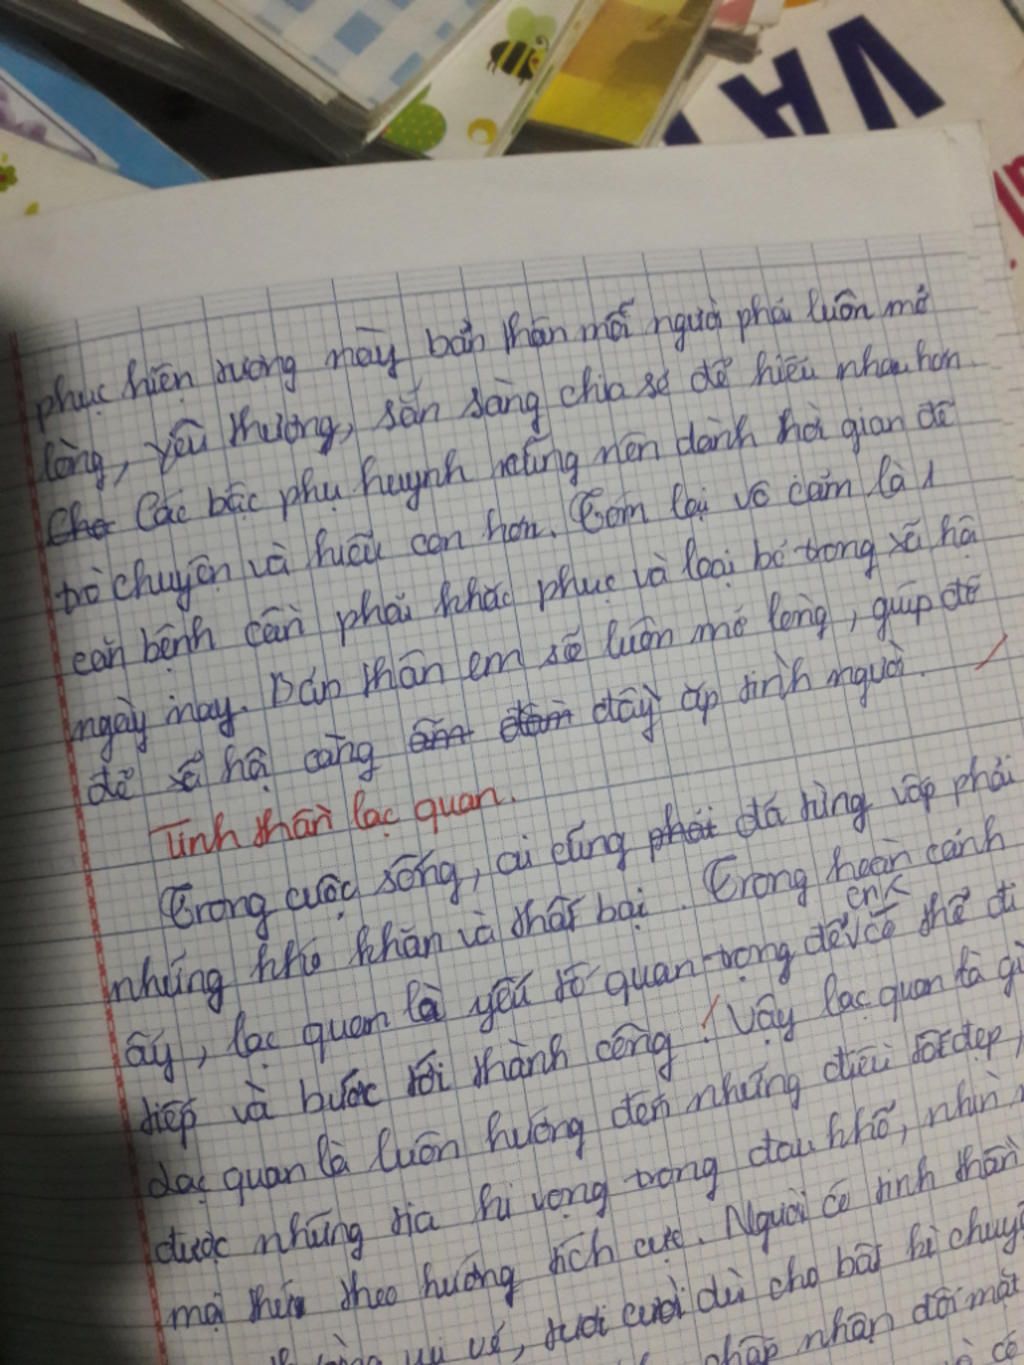 VA
phục hiện tượng này bản thân mỗi người phải luôn mở
lòng, yêu thương, sẵn sàng chia sẻ để hiểu nhau hơn.
Cho Các bậc phụ huynh cũng nên dành thời gian để
trò chuyện và hiểu con hơn. Tóm lại vô cảm là 1
căn bệnh cần phải khắc phục và loại bỏ trong xã hội
ngày nay. Bản thân em sẽ luôn mở lòng, giúp đỡ
để xã hội càng ấm đầm đầy ắp tình người.
Tinh thần lạc quan.
Trong cuộc sống, ai cũng phải đã từng vấp phải
những khó khăn và thất bại. Trong hoàn cảnh
ấy, lạc quan là yếu tố quan trọng để có thể đi
tiếp và bước tới thành công. Vậy lạc quan là gì
Lạc quan là luôn hướng đến những điều tốt đẹp,
được những tia hi vọng trong đau khổ, nhìn
mọi thứ theo hướng tích cực. Người có tinh thần
vui vẻ, tươi cười dù cho bất kì chuyện
chấp nhận đối mặt
có